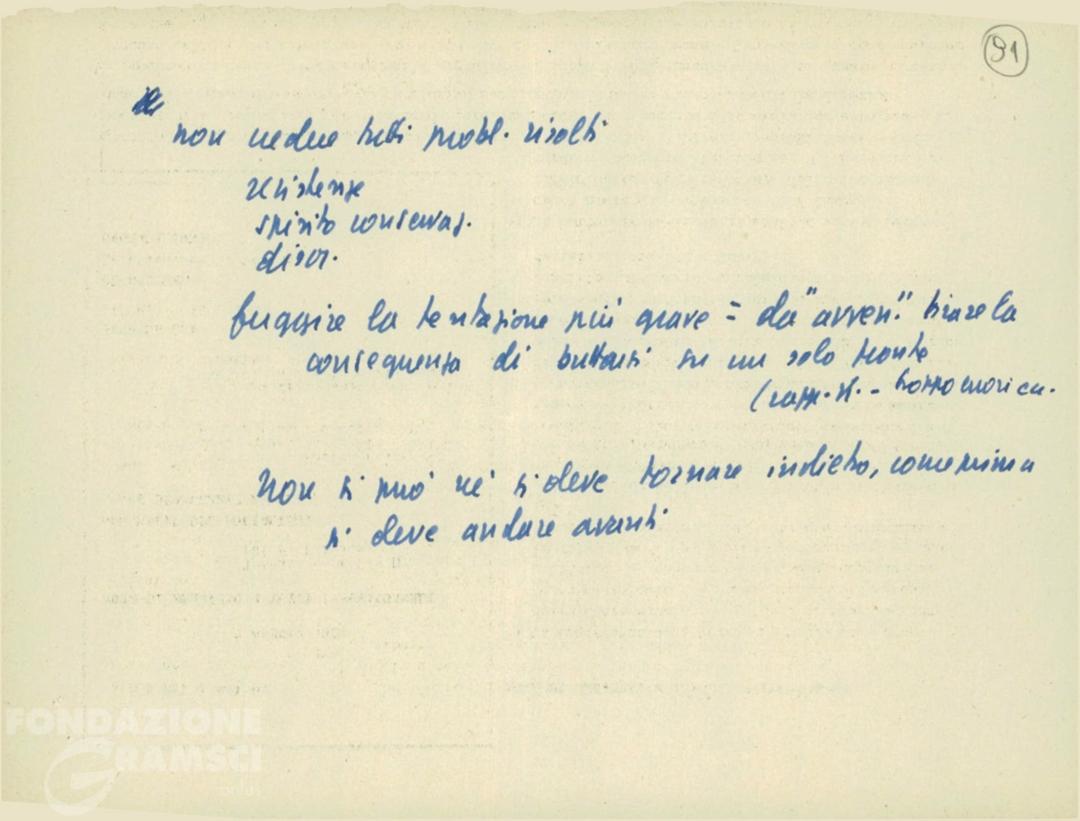 91
non vedere tutti probl. risolti
resistenze
spirito conservaz.
disor.
fuggire la tentazione più grave = da "avven." tirare la
conseguenza di buttarsi su un solo fronte
(rapp. st. -
Non si può nè si deve tornare indietro, come prima
si deve andare avanti
FONDAZIONE
GRAMSCI
onlus